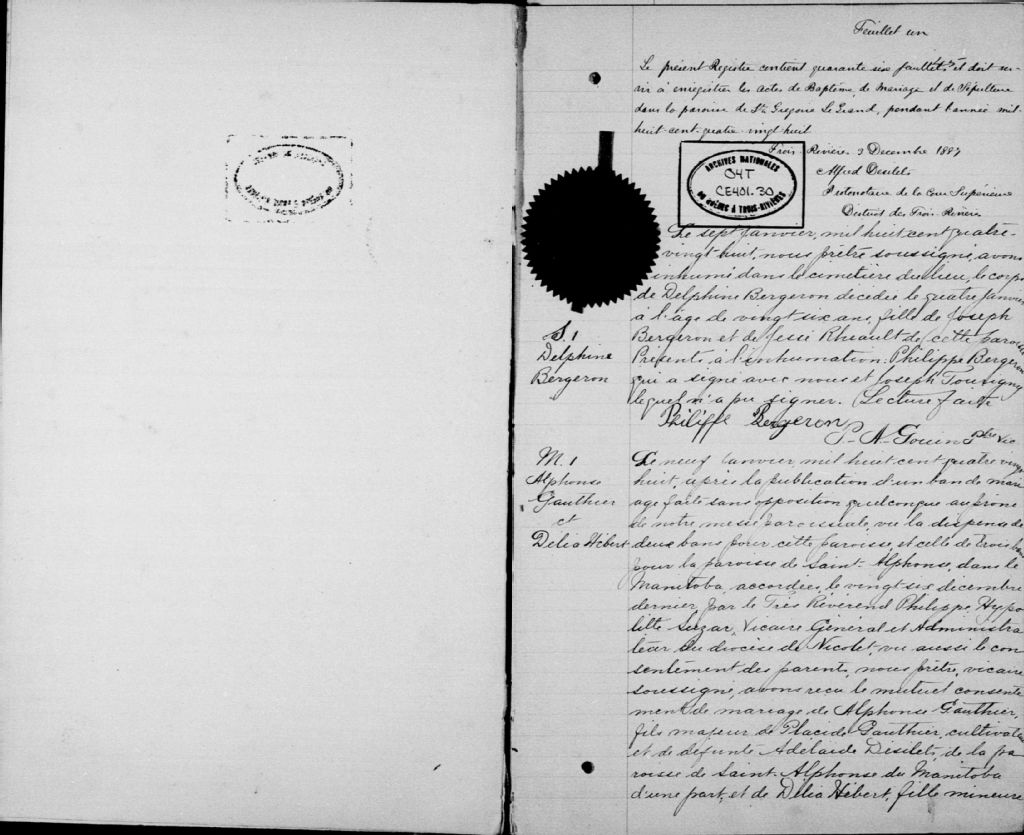 Feuillet un
Le présent Registre contient quarante six feuillets et doit ser-
vir à enregistrer les actes de Baptême, de Mariage et de Sépulture
dans la paroisse de St Gregoire Le Grand, pendant l'année mil-
huit-cent-quatre-vingt huit
Trois-Rivières 3 Decembre 1887
ARCHIVES NATIONALES
04T
CE401-30
DU QUÉBEC À TROIS-RIVIÈRES
Alfred Desilets
Protonotaire de la Cour Supérieure
District des Trois-Rivières
S. 1
Delphine
Bergeron
Le sept janvier, mil huit cent quatre-
vingt huit, nous prêtre soussigné, avons
inhumé dans le cimetière du lieu, le corps
de Delphine Bergeron décédée le quatre janvier
à l'âge de vingt six ans, fille de Joseph
Bergeron et de Jessé Rhéault de cette paroisse
Présents à l'inhumation: Philippe Bergeron
qui a signé avec nous et Joseph Tourigny
lequel n'a pu signer. Lecture faite
Philippe Bergeron
P. A. Gouin Ptre Vic.
M. 1
Alphonse
Gauthier
et
Délia Hébert
Le neuf janvier, mil huit cent quatre vingt
huit, après la publication d'un ban de mari
age faite sans opposition quelconque au prône
de notre messe paroissiale, vu la dispense de
deux bans pour cette paroisse, et celle de trois bans
pour la paroisse de Saint-Alphonse, dans le
Manitoba, accordées, le vingt-six décembre
dernier, par le Très Révérend Philippe Hypo
litte Suzor, Vicaire Général et Administra
teur du diocèse de Nicolet, vu aussi le con
sentement des parents, nous prêtre, vicaire
soussigné, avons reçu le mutuel consente
ment de mariage de Alphonse Gauthier,
fils majeur de Placide Gauthier, cultivateur
et de défunte Adélaïde Désilets, de la pa
roisse de Saint-Alphonse du Manitoba
d'une part, et de Délia Hébert, fille mineure